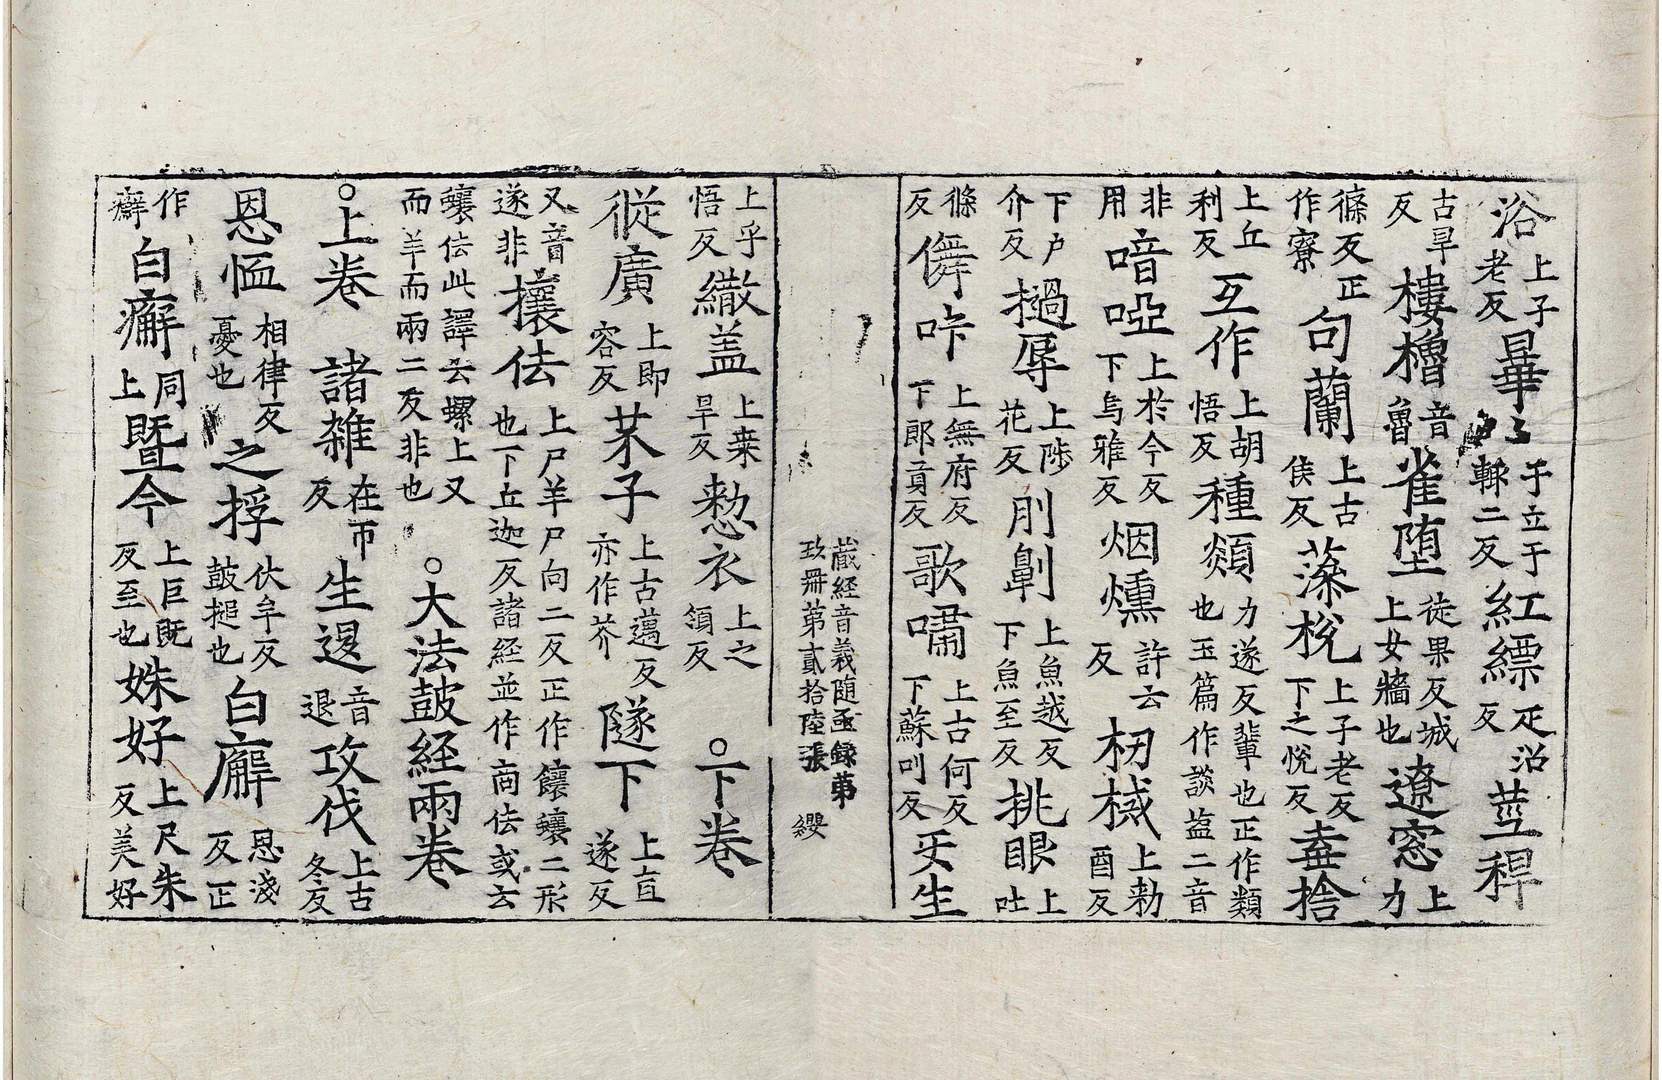 浴上子老反畢于立于輒二反紅縹疋沼反莖稈
古旱反樓櫓音魯雀堕徒果反城上女牆也遼窓上力
條反正作寮句蘭上古侯反藻梲上子老反下之悅反壸捨
上丘利反互作上胡悟反種𩔖力遂反輩也正作類也玉篇作談𥁕二音
非用喑啞上於今反下烏雅反烟燻許云反杻械上勑酉反
下户介反撾辱上陟花反刖劓上魚越反下魚至反挑眼上吐
條反儛咔上無府反下郎貢反歌嘯上古何反下蘇叫反夭生
蔵經音義随函録第玖冊第貳拾陸張 纓
上乎悟反繖盖上桒旱反愗衣上之領反○下卷
從廣上即容反芥子上古邁反亦作芥隧下上直遂反
又音遂非攘佉上尸羊尸向二反正作饟蠰二形也下丘迦反諸經並作商佉或云
蠰佉此譯云螺上又而羊而兩二反非也○大法鼓經兩卷
○上卷 諸雜在帀反生退音退攻伐上古冬反
恩恤相律反憂也之桴伏牟反鼓搥也白癬恩淺反正
作癬白癬同上暨今上巨既反至也姝好上尺朱反美好